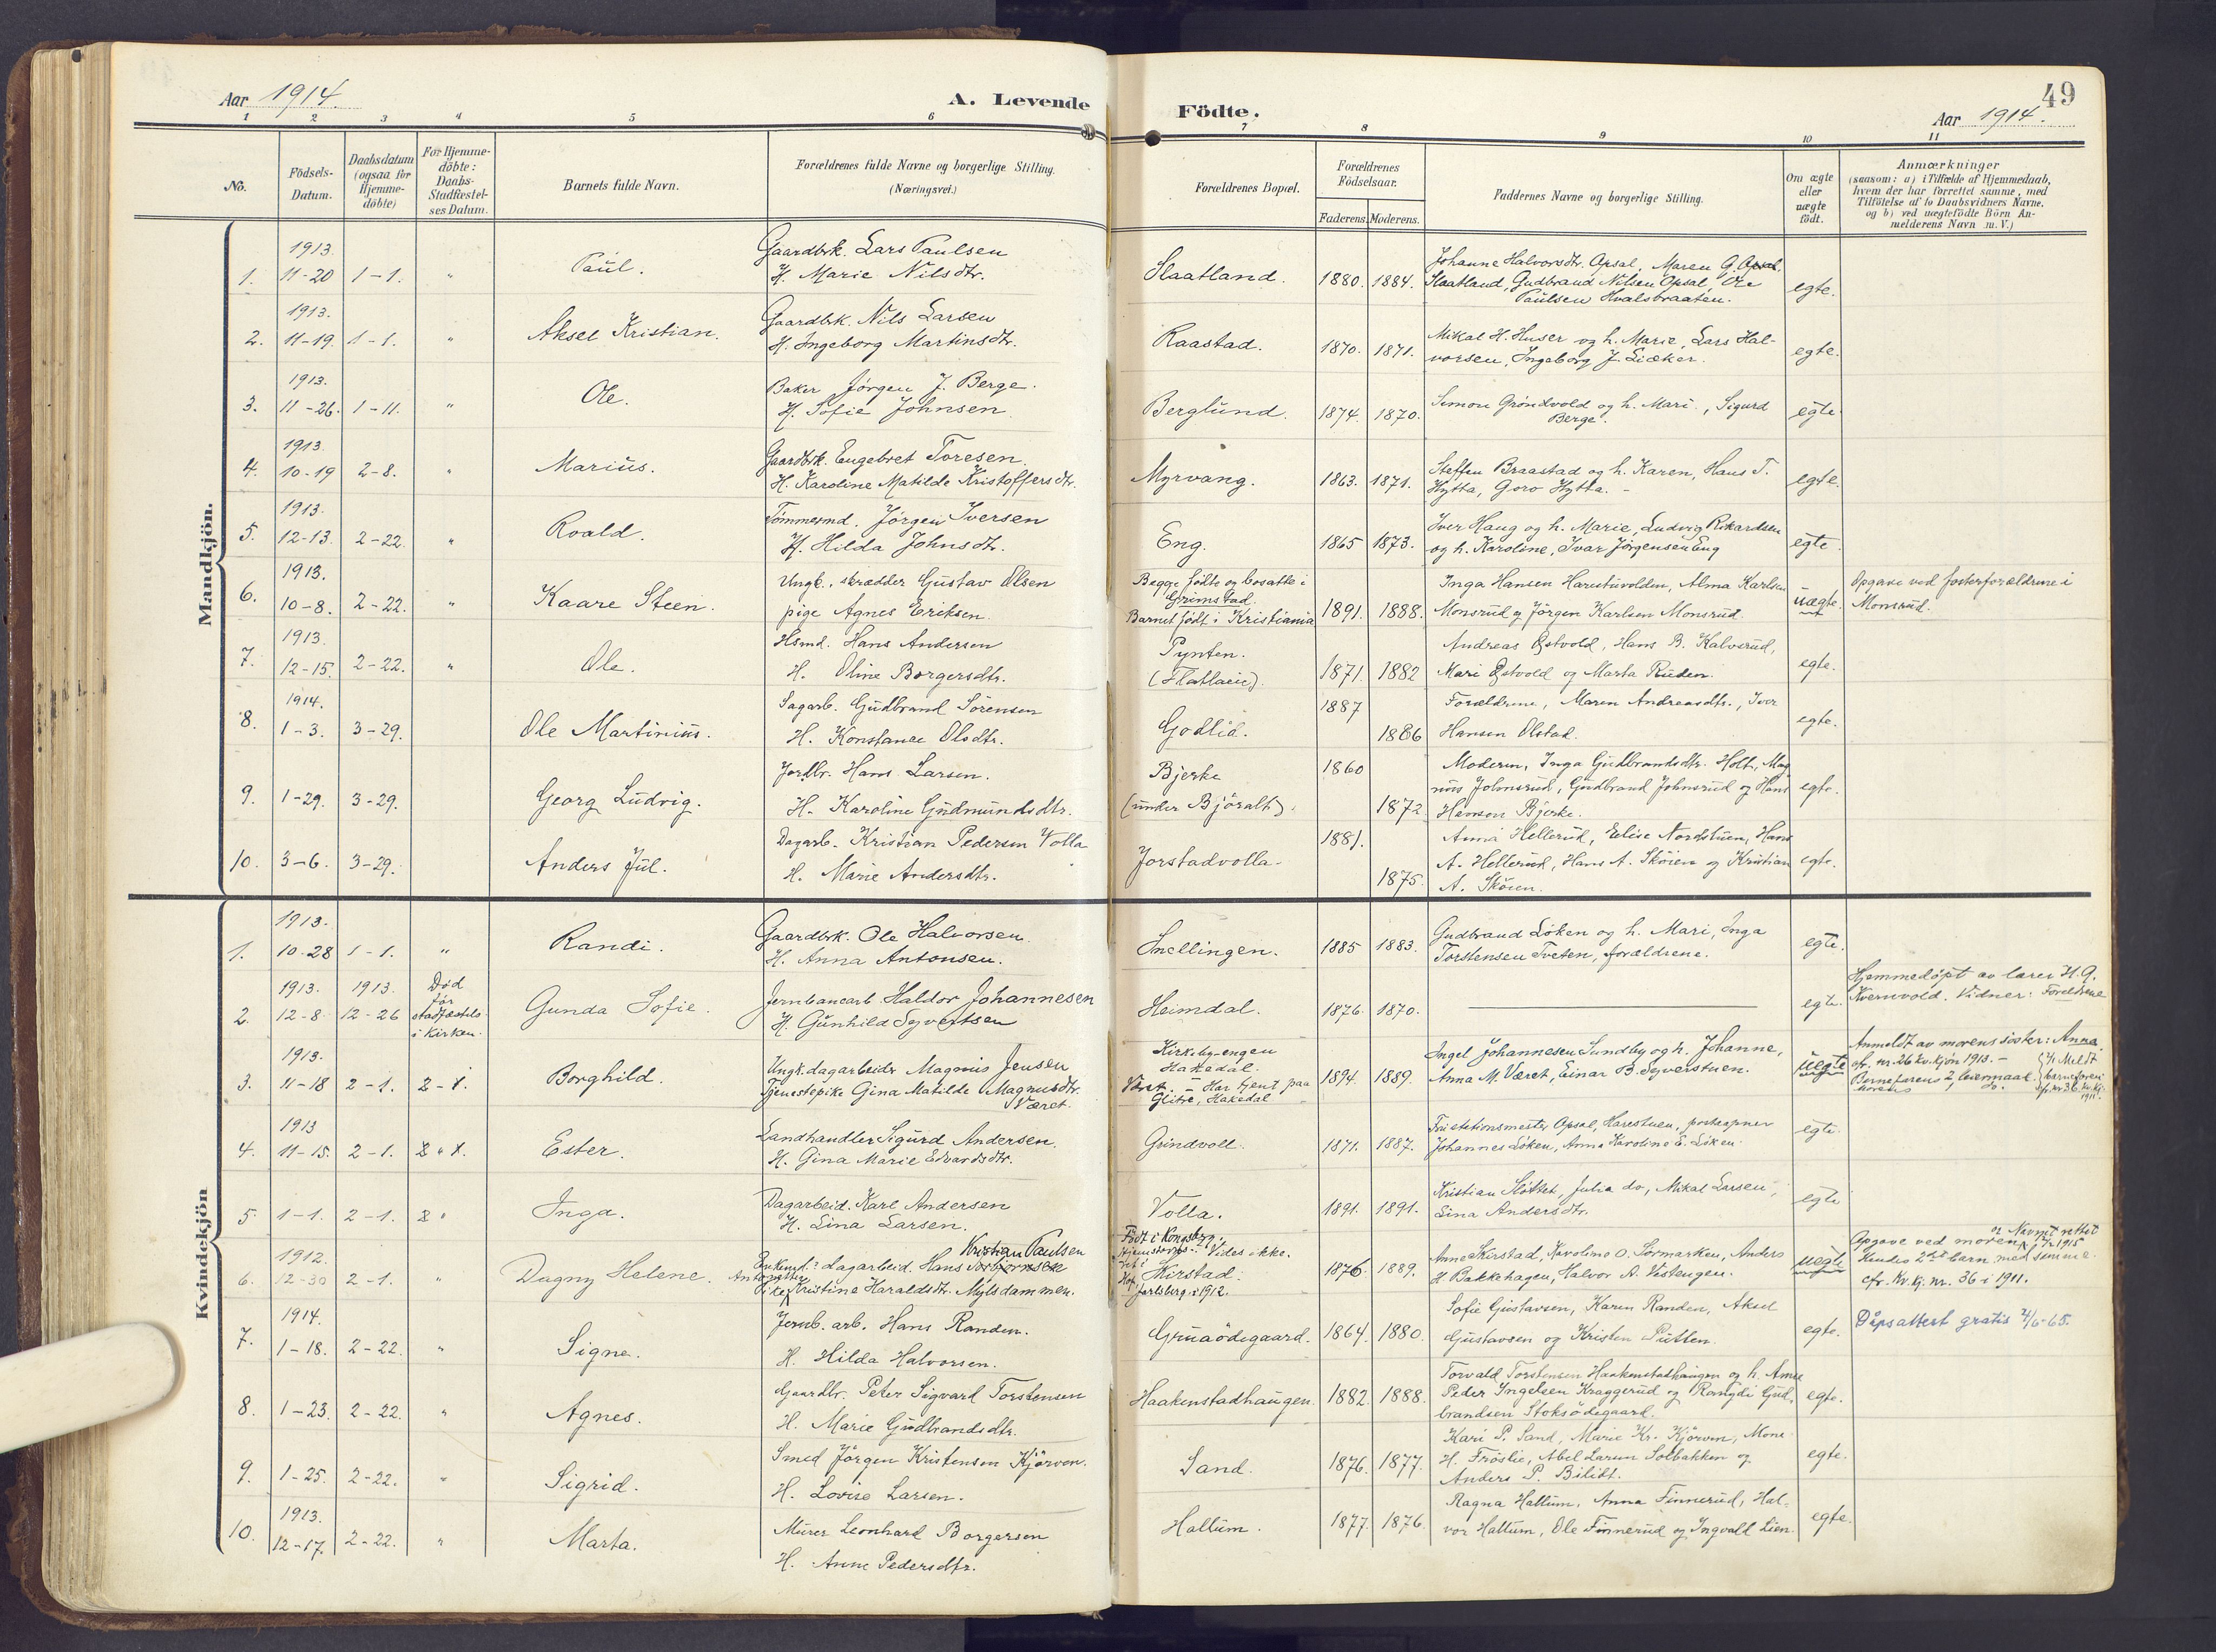 Aar 1914.
A. Levende
Födte.
49
Aar 1914.
1 2 3 4 5 6 7 8 9 10 11
No.
Födsels-
Datum.
Daabsdatum
(ogsaa for
Hjemme-
döbte)
For Hjemme-
döbte:
Daabs-
Stadfæstel-
ses Datum.
Barnets fulde Navn.
Forældrenes fulde Navne og borgerlige Stilling.
(Næringsvei.)
Forældrenes Bopæl.
Forældrenes
Födselsaar.
Faderens. Moderens.
Faddernes Navne og borgerlige Stilling.
Om ægte
eller
uægte
födt.
Anmærkninger
(saasom: a) i Tilfælde af Hjemmedaab,
hvem der har forrettet samme, med
Tilföielse af to Daabsvidners Navne,
og b) ved uægtefödte Börn An-
melderens Navn m. V.)
Mandkjön.
1. 1913. 11-20 1-1. " Paul.
Gaardbrk. Lars Paulsen
H. Marie Nilsdtr.
Slaatland. 1880. 1884.
Johanne Halvorsdtr. Opsal, Maren G.
Slaatland, Gudbrand Nilsen Opsal, Ole
Paulsen Hvalsbraaten.
egte.
2. 1913. 11-19. 1-1. " Aksel Kristian.
Gaardbrk. Nils Larsen
H. Ingeborg Martinsdtr.
Raastad. 1870. 1871.
Mikal H. Huser og h. Marie, Lars Hal-
vorsen, Ingeborg J. Liæker.
egte.
3. 1913. 11-26. 1-11. " Ole.
Baker Jörgen J. Berge.
H. Sofie Johnsen.
Berglund. 1874. 1870.
Simon Gröndvold og h. Mari, Sigurd
Berge.
egte
4. 1913. 10-19 2-8. " Marius.
Gaardbrk. Engebret Toresen.
H. Karoline Matilde Kristoffersdtr.
Myrvang. 1863. 1871.
Steffen Braastad og h. Karen, Hans T.
Hytta, Goro Hytta. -
egte.
5. 1913. 12-13. 2-22. " Roald.
Tömmermd. Jörgen Iversen
H. Hilda Johnsdtr.
Eng. 1865 1873.
Iver Haug og h. Marie, Ludvig Rikardsen
og h. Karoline, Ivar Jörgensen Eng
egte.
6. 1913. 10-8. 2-22. " Kaare Steen.
Ungk., skrædder Gustav Olsen
pige Agnes Eriksen.
Begge fødte og bosatte i
Grimstad.
Barnet født i Kristiania
1891. 1888.
Inga Hansen Harestuvolden, Alma Karlsen
Monsrud og Jörgen Karlsen Monsrud.
uægte.
Opgave ved fosterforældrene i
Monsrud.
7. 1913. 12-15. 2-22. " Ole.
Hsmd. Hans Andersen
H. Oline Borgersdtr.
Pynten.
1871. 1882
Andreas Østvold, Hans B. Kalverud,
Mari Østvold og Marta Ruden.
egte.
8. 1914. 1-3. 3-29. Ole Martinius.
Sagarb. Gudbrand Sörensen
H. Konstance Olsdtr.
Godlid. 1887 1886
Forældrene, Maren Andreasdtr., Iver
Hansen Olstad.
egte.
9. 1-29. 3-29. Georg Ludvig.
Jordbr. Hans Larsen.
H. Karoline Gudmundsdtr.
Bjerke
(under Björalt).
1860 1872
Moderen, Inga Gudbrandsdtr. Holt, Mag
nus Johnsrud, Gudbrand Johnsrud og Hans
Hansen Bjerke.
egte.
10. 3-6. 3-29. Anders Jul.
Dagarb. Kristian Pedersen Volla
H. Marie Andersdtr.
Jorstadvolla. 1881. 1875.
Anna Hellerud, Elise Nordstuen, Hans
A. Hellerud, Hans A. Sköien og Kristian
A. Sköien.
egte.
Kvindekjön
1. 1913. 10-28 1-1. " Randi.
Gaardbrk. Ole Halvorsen
H. Anna Antonsen.
Snellingen. 1885 1883.
Gudbrand Löken og h. Mari, Inga
Torstensen Tveten, forældrene.
egte.
2. 1913. 12-8 1913. 12-26
Död
før
stadfæstels
i Kirken.
Gunda Sofie.
Jernbanearb. Haldor Johannesen
H. Gunhild Syvertsen
Heimdal. 1876. 1870.
egte.
Hjemmedöpt av lærer H. G.
Kvernvold. Vidner: Foreldrene
3. 1913. 11-18 2-1. Borghild.
Ungk. dagarbeider Magnus Jensen
Tjenestepike Gina Matilde Magnusdtr.
Været.
Kirkeby-engen
Hakedal.
Været. - Har tjent paa
Glitre, Hakedal
1894. 1889.
Ingel Johannesen Sundby og h. Johanne,
Anna M. Været, Einar B. Syverstuen.
uegte
Anmeldt av morens söster: Anna
cfr. nr. 26 kv. kjön 1913. -
Barnefarens 2, leiermaal.
morens do.
4. 1913 11-15. 2-1. Ester.
Landhandler Sigurd Andersen.
H. Gina Marie Edvardsdtr.
Grindvoll. 1871. 1887.
Johannes Löken, Anna Karoline E. Löken.
egte.
5. 1-1. 2-1. Inga.
Dagarbeid. Karl Andersen
H. Lina Larsen.
Volla. 1891. 1891.
Kristian Slöttet, Julia do, Mikal Larsen,
Lina Andersdtr.
egte
6. 1912. 12-30 2-1. " Dagny Helene.
Kristian Paulsen
Enkemd.? dagarbeid. Hans
Antonette
Pike Kristine Haraldsdtr. Mylsdammen.
Født i Kongsberg.
Vides ikke.
Skirstad.
Jarlsberg i 1912.
1876. 1889.
Anne Skirstad, Karoline O. Sormarken, Anders
H. Bakkehagen, Halvor A. Vestengen.
uegte
Opgave ved moren.
Kindes 2det barn med samme.
cfr. Kv. kj. nr. 36 i 1911.
7. 1914. 1-18. 2-22. " Signe.
Jernb. arb. Hans Randen.
H. Hilda Halvorsen.
Gruaödegaard. 1864. 1880.
Sofie Gustavsen, Karen Randen, Aksel
Gustavsen og Kristen Putten.
egte.
Dåpsattest gratis 2/6-65.
8. 1-23. 2-22. " Agnes.
Gaardbr. Peter Sigvard Torstensen
H. Marie Gudbrandsdtr.
Haakenstadhaugen. 1882. 1888.
Torvald Torstensen Haakenstadhaugen og h. Anne
Peder Ingelsen Kraggerud og Rangdi Gud-
brandsen Stoksödegaard.
egte.
9. 1-25. 2-22. " Sigrid.
Smed Jörgen Kristensen Kjörven.
H. Lovise Larsen.
Sand. 1876. 1877.
Kari P. Sand, Marie Kr. Kjörven, Mone
H. Fröslie, Abel Larsen Solbakken og
Anders P. Bilidt.
egte.
10. 1913. 12-17. 2-22. " Marta.
Murer Leonhard Borgersen
H. Anne Pedersdtr.
Hallum. 1877. 1876
Ragna Hallum, Anna Finnerud, Hal-
vor Hallum, Ole Finnerud og Ingvald Lien.
egte.